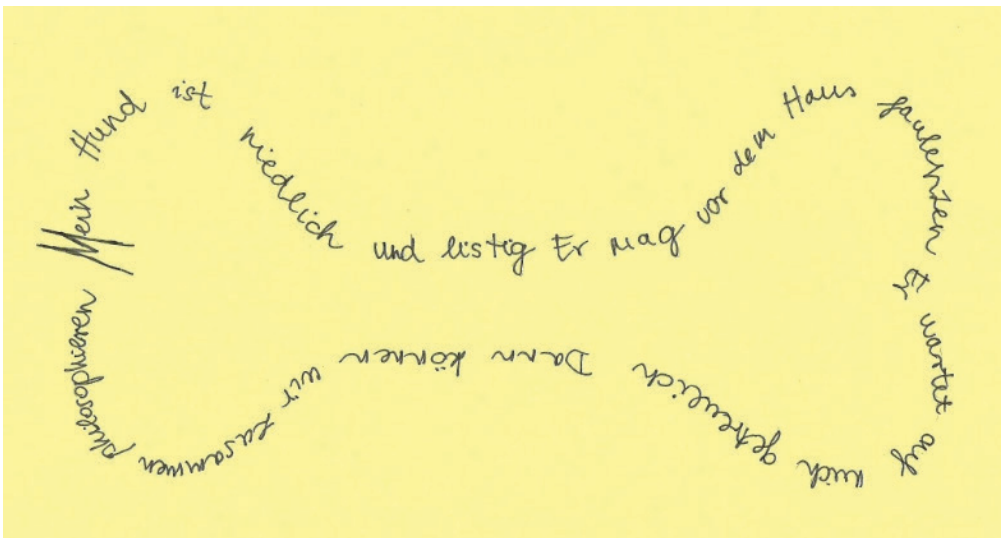 Mein Hund ist niedlich und listig Er mag vor dem Haus faulenzen Er wartet auf mich getreulich Dann können wir zusammen philosophieren